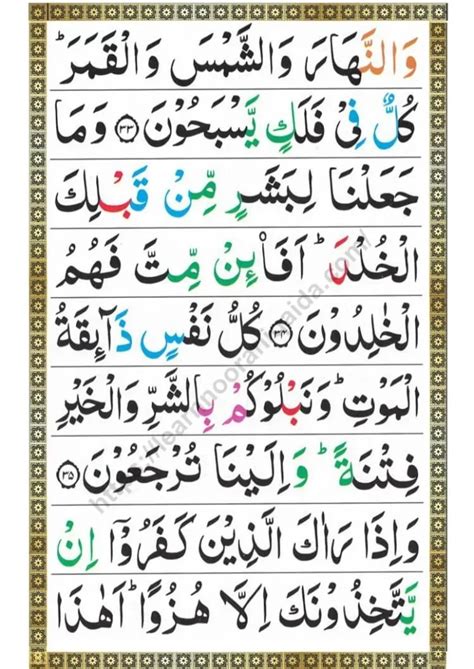 وَالنَّهَارَ وَالشَّمْسَ وَالْقَمَرَ ؕ
كُلٌّ فِیْ فَلَكٍ یَّسْبَحُوْنَ ۝۳۳ وَمَا
جَعَلْنَا لِبَشَرٍ مِّنْ قَبْلِكَ
الْخُلْدَ ؕ اَفَا۟ئِنْ مِّتَّ فَهُمُ
الْخٰلِدُوْنَ ۝۳۴ كُلُّ نَفْسٍ ذَآئِقَةُ
الْمَوْتِ ؕ وَنَبْلُوْكُمْ بِالشَّرِّ وَالْخَیْرِ
فِتْنَةً ؕ وَاِلَیْنَا تُرْجَعُوْنَ ۝۳۵
وَاِذَا رَاٰكَ الَّذِیْنَ كَفَرُوْۤا اِنْ
یَّتَّخِذُوْنَكَ اِلَّا هُزُوًا ؕ اَهٰذَا
https://learnnooraniqaida.com/